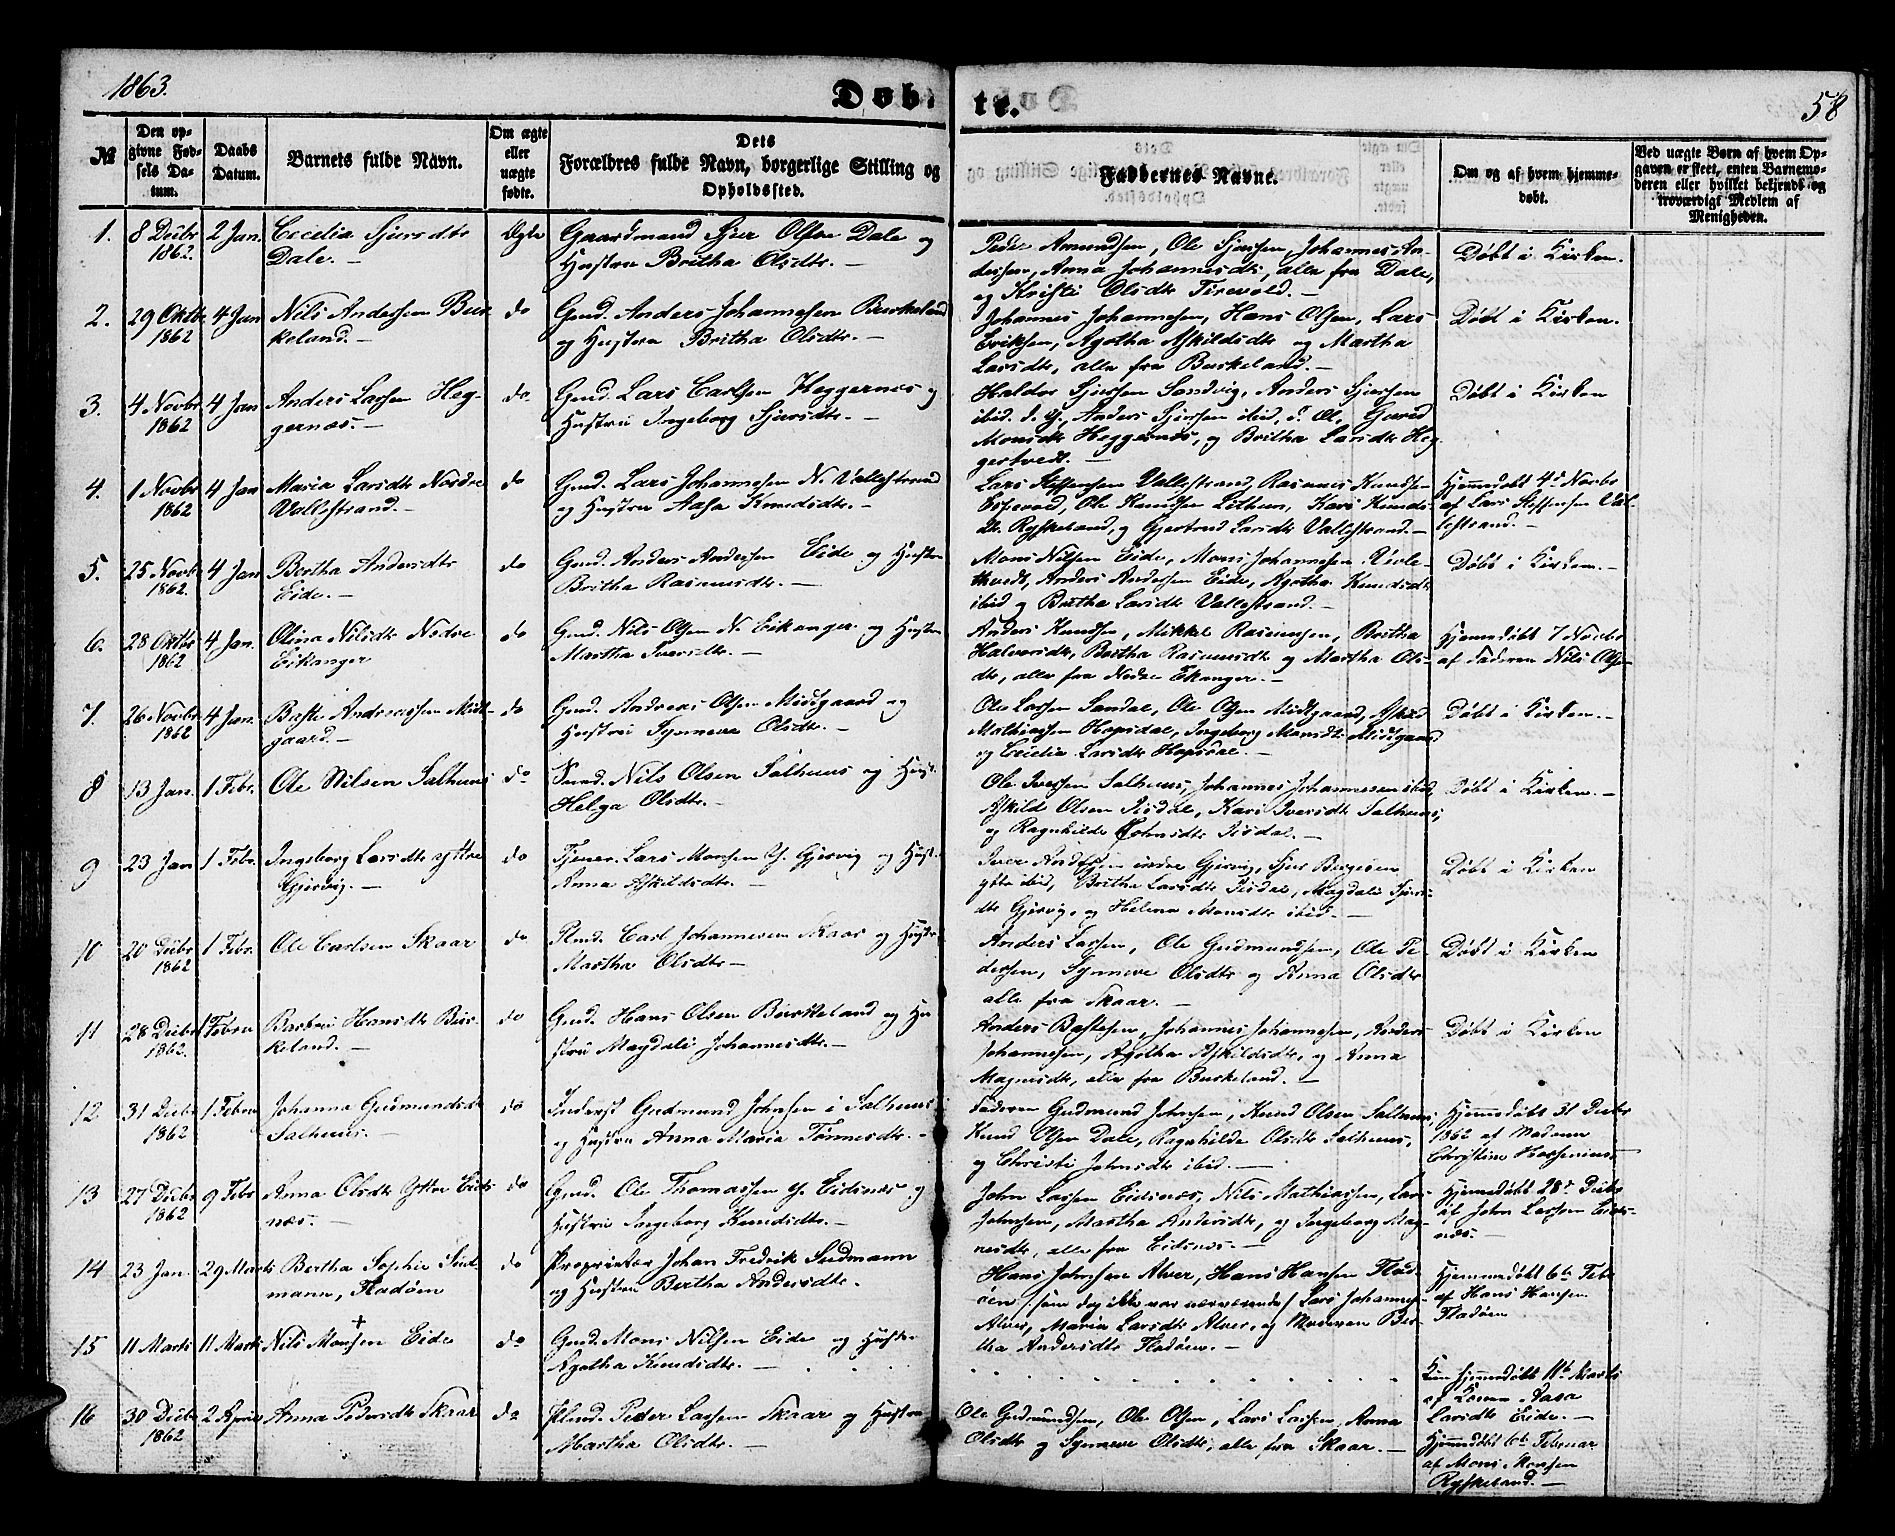 1863.
Døb-
te.
58
№
Den op-
givne Fød-
sels Da-
tum.
Daabs
Datum.
Barnets fulde Navn.
Om ægte
eller
uægte
fødte.
Dets
Forældres fulde Navn, borgerlige Stilling og
Opholdssted.
Faddernes Navne.
Om og af hvem hjemme-
døbt.
Ved uægte Børn af hvem Op-
gaven er skeet, enten Barnemo-
deren eller hvilket bekjendt og
troværdigt Medlem af
Menigheden.
1. 8 Decbr 2 Jan. Cecelia Sjursdtr Ægte Gaardmand Sjur Olsen Dale og
1862. Dale. — Hustru Britha Olsdtr. —
Peder Amundsen, Ole Sjursen, Johannes An-
dersen, Anna Johannesdtr, alle fra Dale,
og Kristi Olsdtr Tirevold. —
Døbt i Kirken.
2. 29 Oktbr 4 Jan Nils Andersen Bur- do Gmd. Anders Johannesen Burkeland
1862 keland. — og Hustru Britha Olsdtr. —
Johannes Johannesen, Hans Olsen, Lars
Eriksen, Agotha Askildsdtr og Martha
Larsdtr, alle fra Burkeland. —
Døbt i Kirken.
3. 4 Novbr 4 Jan Anders Larsen Heg- do. Gmd. Lars Carlsen Heggernes og
1862 gernæs. — Hustru Ingeborg Sjursdtr. —
Haldor Sjursen Sandvig, Anders Sjursen
ibid. d. Y., Anders Sjursen ibid, d. Æ.,
Monsdtr Heggernæs, og Britha Larsdtr Heg-
gertvedt. —
Døbt i Kirken
4. 1 Novbr 4 Jan Maria Larsdtr Nordre do Gmd. Lars Johannesen N. Vallestrand
1862 Vallestrand. — og Hustru Aasa Knudsdtr. —
Lars Steffensen Vallestrand, Rasmus Knudsen
Espevold, Ole Knudsen Lithun, Kari Knuds-
dtr. Ryskeland, og Gjertrud Larsdtr Vallestrand. —
Hjemmedøbt 4de Novbr
af Lars Steffensen Val-
lestrand. —
5. 25 Novbr 4 Jan Bertha Andersdtr do Gmd. Anders Andersen Eide og Hustru
1862. Eide. — Britha Rasmusdtr. —
Mons Nilsen Eide, Mons Johannesen
Anders Andersen Eide, Agotha Knudsdtr
ibid og Britha Larsdtr Vallestrand. —
Døbt i Kirken. —
6. 28 Oktbr 4 Jan. Olina Nilsdtr Nedre do Gmd. Nils Olsen N. Eikanger og Hustru
1862 Eikanger Martha Iversdtr. —
Anders Knudsen, Mikkel Rasmusen, Britha
Halvorsdtr, Britha Rasmusdtr og Martha Ols-
dtr, alle fra Nedre Ekanger. —
Hjemmedøbt 7 Novbr
af Faderen Nils Olsen
7. 26 Novbr 4 Jan. Baste Andreassen Mit- do Gmd. Andreas Olsen Midtgaard og
1862 gaard. — Hustru Synneve Olsdtr. —
Ole Larsen Sandal, Ole Olsen Midtgaard, Askild
Mathiassen Hopsdal, Ingeborg Monsdtr Midtgaard
og Cecilia Larsdtr Hopsdal. —
Døbt i Kirken. —
8 13 Jan. 1 Febr. Ole Nilsen Salhuus do Smd. Nils Olsen Salhuus og Hust.
Helga Olsdtr. —
Ole Iversen Salhuus, Johannes Johannesen ibid,
Askild Olsen Tisdal, Kari Iversdtr Salhuus,
og Ragnhilde Johnsdtr Tisdal. —
Døbt i Kirken. —
9 23 Jan 1 Febr. Ingeborg Larsdtr yttre do Tjener Lars Monsen Y. Gjervig og Hust.
Gjervig. — Anna Askildsdtr. —
Iver Andersen indre Gjervig, Sjur Birgesen
ytre ibid, Britha Larsdtr Tisdal, Magdali Sjurs-
dtr Gjervig, og Helena Monsdtr ibid. —
Døbt i Kirken
10 20 Decbr 1 Febr. Ole Carlsen Skaar do Plmd. Carl Johannesen Skaar og Hustr.
1862 Martha Olsdtr —
Anders Larsen, Ole Gudmundsen, Ole Pe-
dersen, Synneve Olsdtr og Anna Olsdtr
alle fra Skaar. —
Døbt i Kirken
11 28 Decbr 1 Febru Hansdtr Bur- do Gmd. Hans Olsen Burkeland og Hu-
1862. keland. — stru Magdeli Johannesdtr. —
Anders Bastesen, Johannes Johannesen, Anders
Johannesen, Agotha Askildsdtr, og Anna
Magnesdtr, alle fra Burkeland. —
Døbt i Kirken
12. 31 Decbr 1 Febru Johanna Gudmundsdtr do Inderst Gudmund Johnsen i Salhuus
1862 Salhuus. — og Hustru Anna Maria Tønnesdtr. —
Faderen Gudmund Johnsen, Knud Olsen Salhuus,
Knud Olsen Dale, Ragnhilde Olsdtr Salhuus,
og Christi Johnsdtr ibid. —
Hjemmedøbt 31 Decbr
1862 af Madame
Christine
13 27 Decbr 9 Febr Anna Olsdtr Yttre Eids- do Gmd. Ole Thomassen y. Eidsnæs og
1862 næs. — Hustru Ingeborg Knudsdtr. —
John Larsen Eidsnæs, Nils Mathiassen, Lars
Johnsen, Martha Andersdtr, og Ingeborg Mag-
nesdtr, alle fra Eidsnes. —
Hjemmedøbt 28de Decbr
af John Larsen Eids-
næs. —
14 23 Jan. 29 Marts Bertha Sophie Sud- do Proprietær Johan Fredrik Sudmann
mann, Fladøen og Hustru Bertha Andersdtr.
Hans Johnsen Alver, Hans Hansen Flad-
øen (som dog ikke var nærværende) Lars Johannes-
Alver, Maria Larsdtr Alver, og Moderen Ber-
tha Andersdtr Fladøen. —
Hjemmedøbt 6te Febr
af Hans Hansen
Fladøen
15 11 Marts 11 Marts Nils Monsen + Eide do Gmd. Mons Nilsen Eide og Hustr
Agotha Knudsdtr. —
Kun hjemmedøbt 11te Marts
af Konen Aasa
Larsdtr Eide. —
16 30 Decbr 2 April Anna Pedersdtr Skaar do Plmd. Peder Larsen Skaar og Hustru
1862 Martha Olsdtr. —
Ole Gudmundsen, Ole Olsen, Lars Larsen, Anna
Olsdtr og Synneve Olsdtr, alle fra Skaar. —
Hjemmedøbt 6te Februar
af Mons Monsen
Ryskeland. —